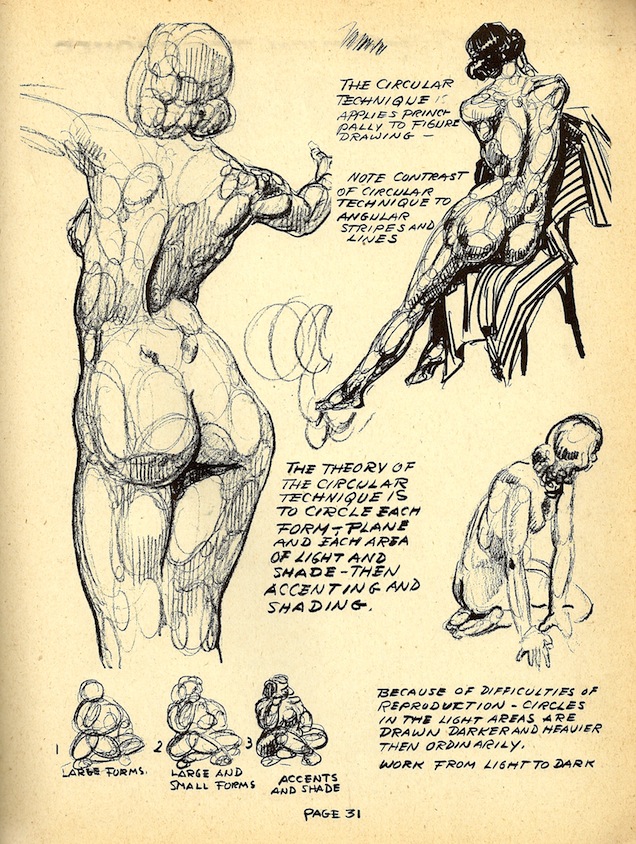 THE CIRCULAR
TECHNIQUE IS
APPLIES PRINCI
PALLY TO FIGURE
DRAWING —
NOTE CONTRAST
OF CIRCULAR
TECHNIQUE TO
ANGULAR
STRIPES AND
LINES
THE THEORY OF
THE CIRCULAR
TECHNIQUE IS
TO CIRCLE EACH
FORM-PLANE
AND EACH AREA
OF LIGHT AND
SHADE-THEN
ACCENTING AND
SHADING.
BECAUSE OF DIFFICULTIES OF
REPRODUCTION - CIRCLES
IN THE LIGHT AREAS ARE
DRAWN DARKER AND HEAVIER
THEN ORDINARILY.
WORK FROM LIGHT TO DARK
1 2 3
LARGE FORMS.
LARGE AND
SMALL FORMS
ACCENTS
AND SHADE
PAGE 31